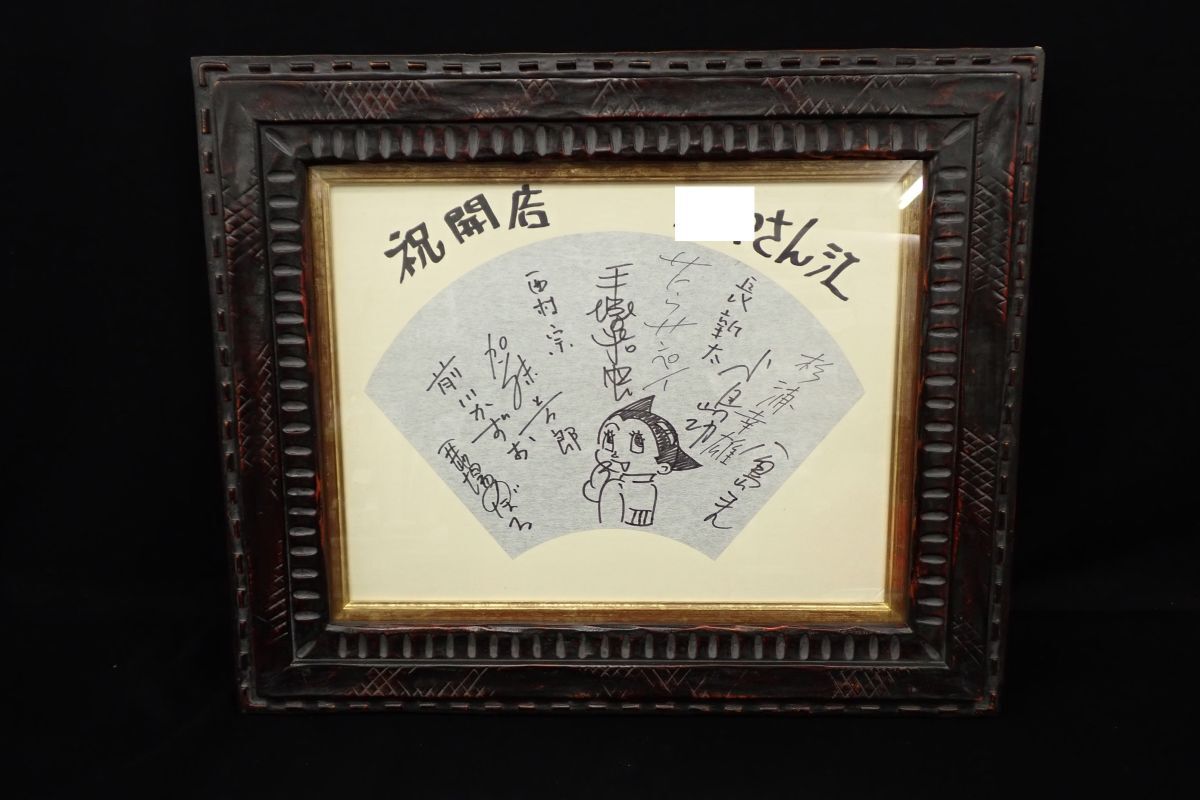 祝開店
さん江
杉浦幸雄
小島功
長新太
サトウサンペイ
手塚治虫
西村宗
加藤芳郎
前川かずお
馬場のぼる